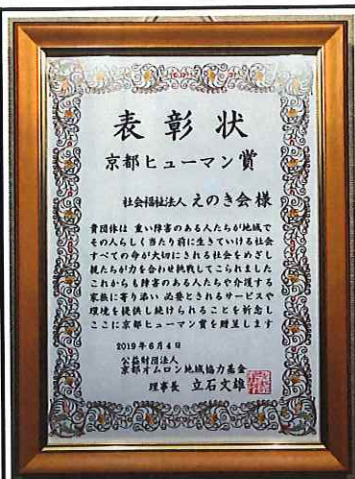 表彰状
京都ヒューマン賞
社会福祉法人 えのき会 様
貴団体は 重い障害のある人たちが地域で
その人らしく当たり前に生きていける社会
すべての命が大切にされる社会をめざし
親たちが力を合わせ挑戦してこられました
これからも障害のある人たちや介護する
家族に寄り添い 必要とされるサービスや
環境を提供し続けられることを祈念し
ここに京都ヒューマン賞を贈呈します
2019年6月4日
公益財団法人
京都オムロン地域協力基金
理事長 立石文雄